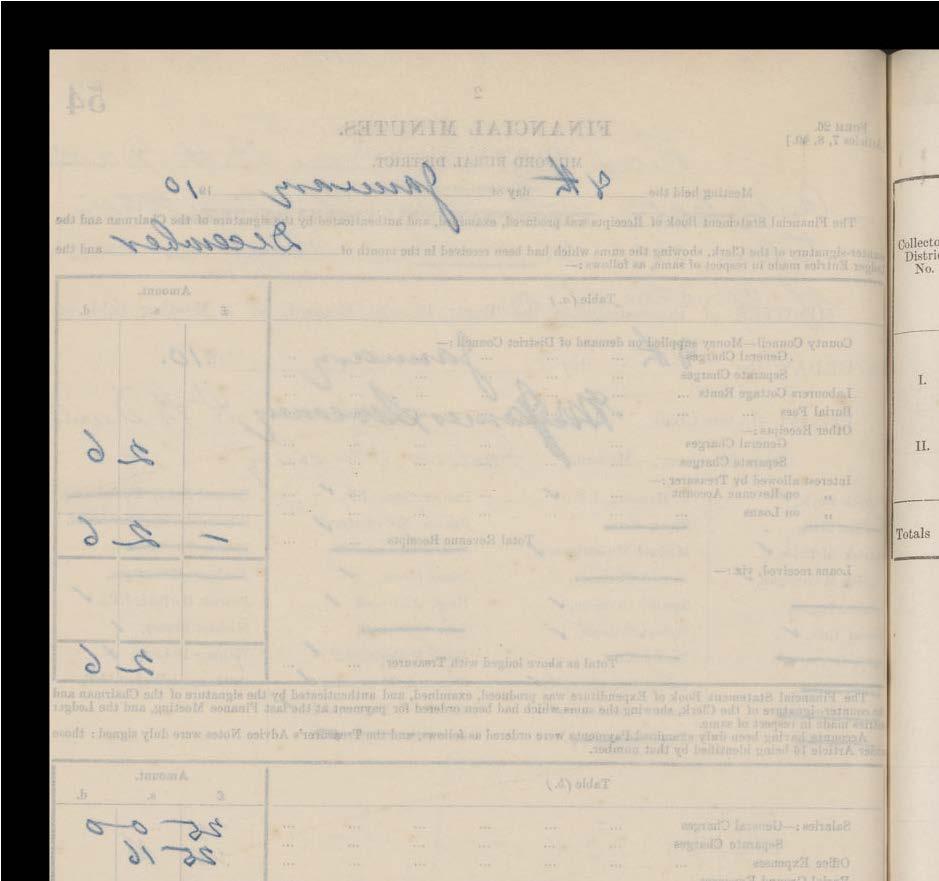 54
2
FINANCIAL MINUTES.
Form 26.
Articles 7, 8, 40.]
MILFORD RURAL DISTRICT.
Meeting held the 8th day of January 1910
The Financial Statement Book of Receipts was produced, examined, and authenticated by the signature of the Chairman and the
counter-signature of the Clerk, showing the sums which had been received in the month of December and the
Ledger Entries made in respect of same, as follows:—
Table (a.) Amount.
£ s. d.
County Council—Money supplied on demand of District Council:—
General Charges
Separate Charges
Labourers Cottage Rents
Burial Fees
Other Receipts:—
General Charges 2 6
Separate Charges
Interest allowed by Treasurer:—
„ on Revenue Account
„ on Loans
Total Revenue Receipts – 2 6
Loans received, viz.:—
Total as above lodged with Treasurer 2 6
The Financial Statement Book of Expenditure was produced, examined, and authenticated by the signature of the Chairman and
counter-signature of the Clerk, showing the sums which had been ordered for payment at the last Finance Meeting, and the Ledger
Entries made in respect of same.
Accounts having been duly examined Payments were ordered as follows, and the Treasurer's Advice Notes were duly signed: those
under Article 16 being identified by that number.
Table (b.) Amount.
£ s. d.
Salaries:—General Charges 25 0 0
Separate Charges 25 16
Office Expenses
Collecto
Distric
No.
I.
II.
Totals